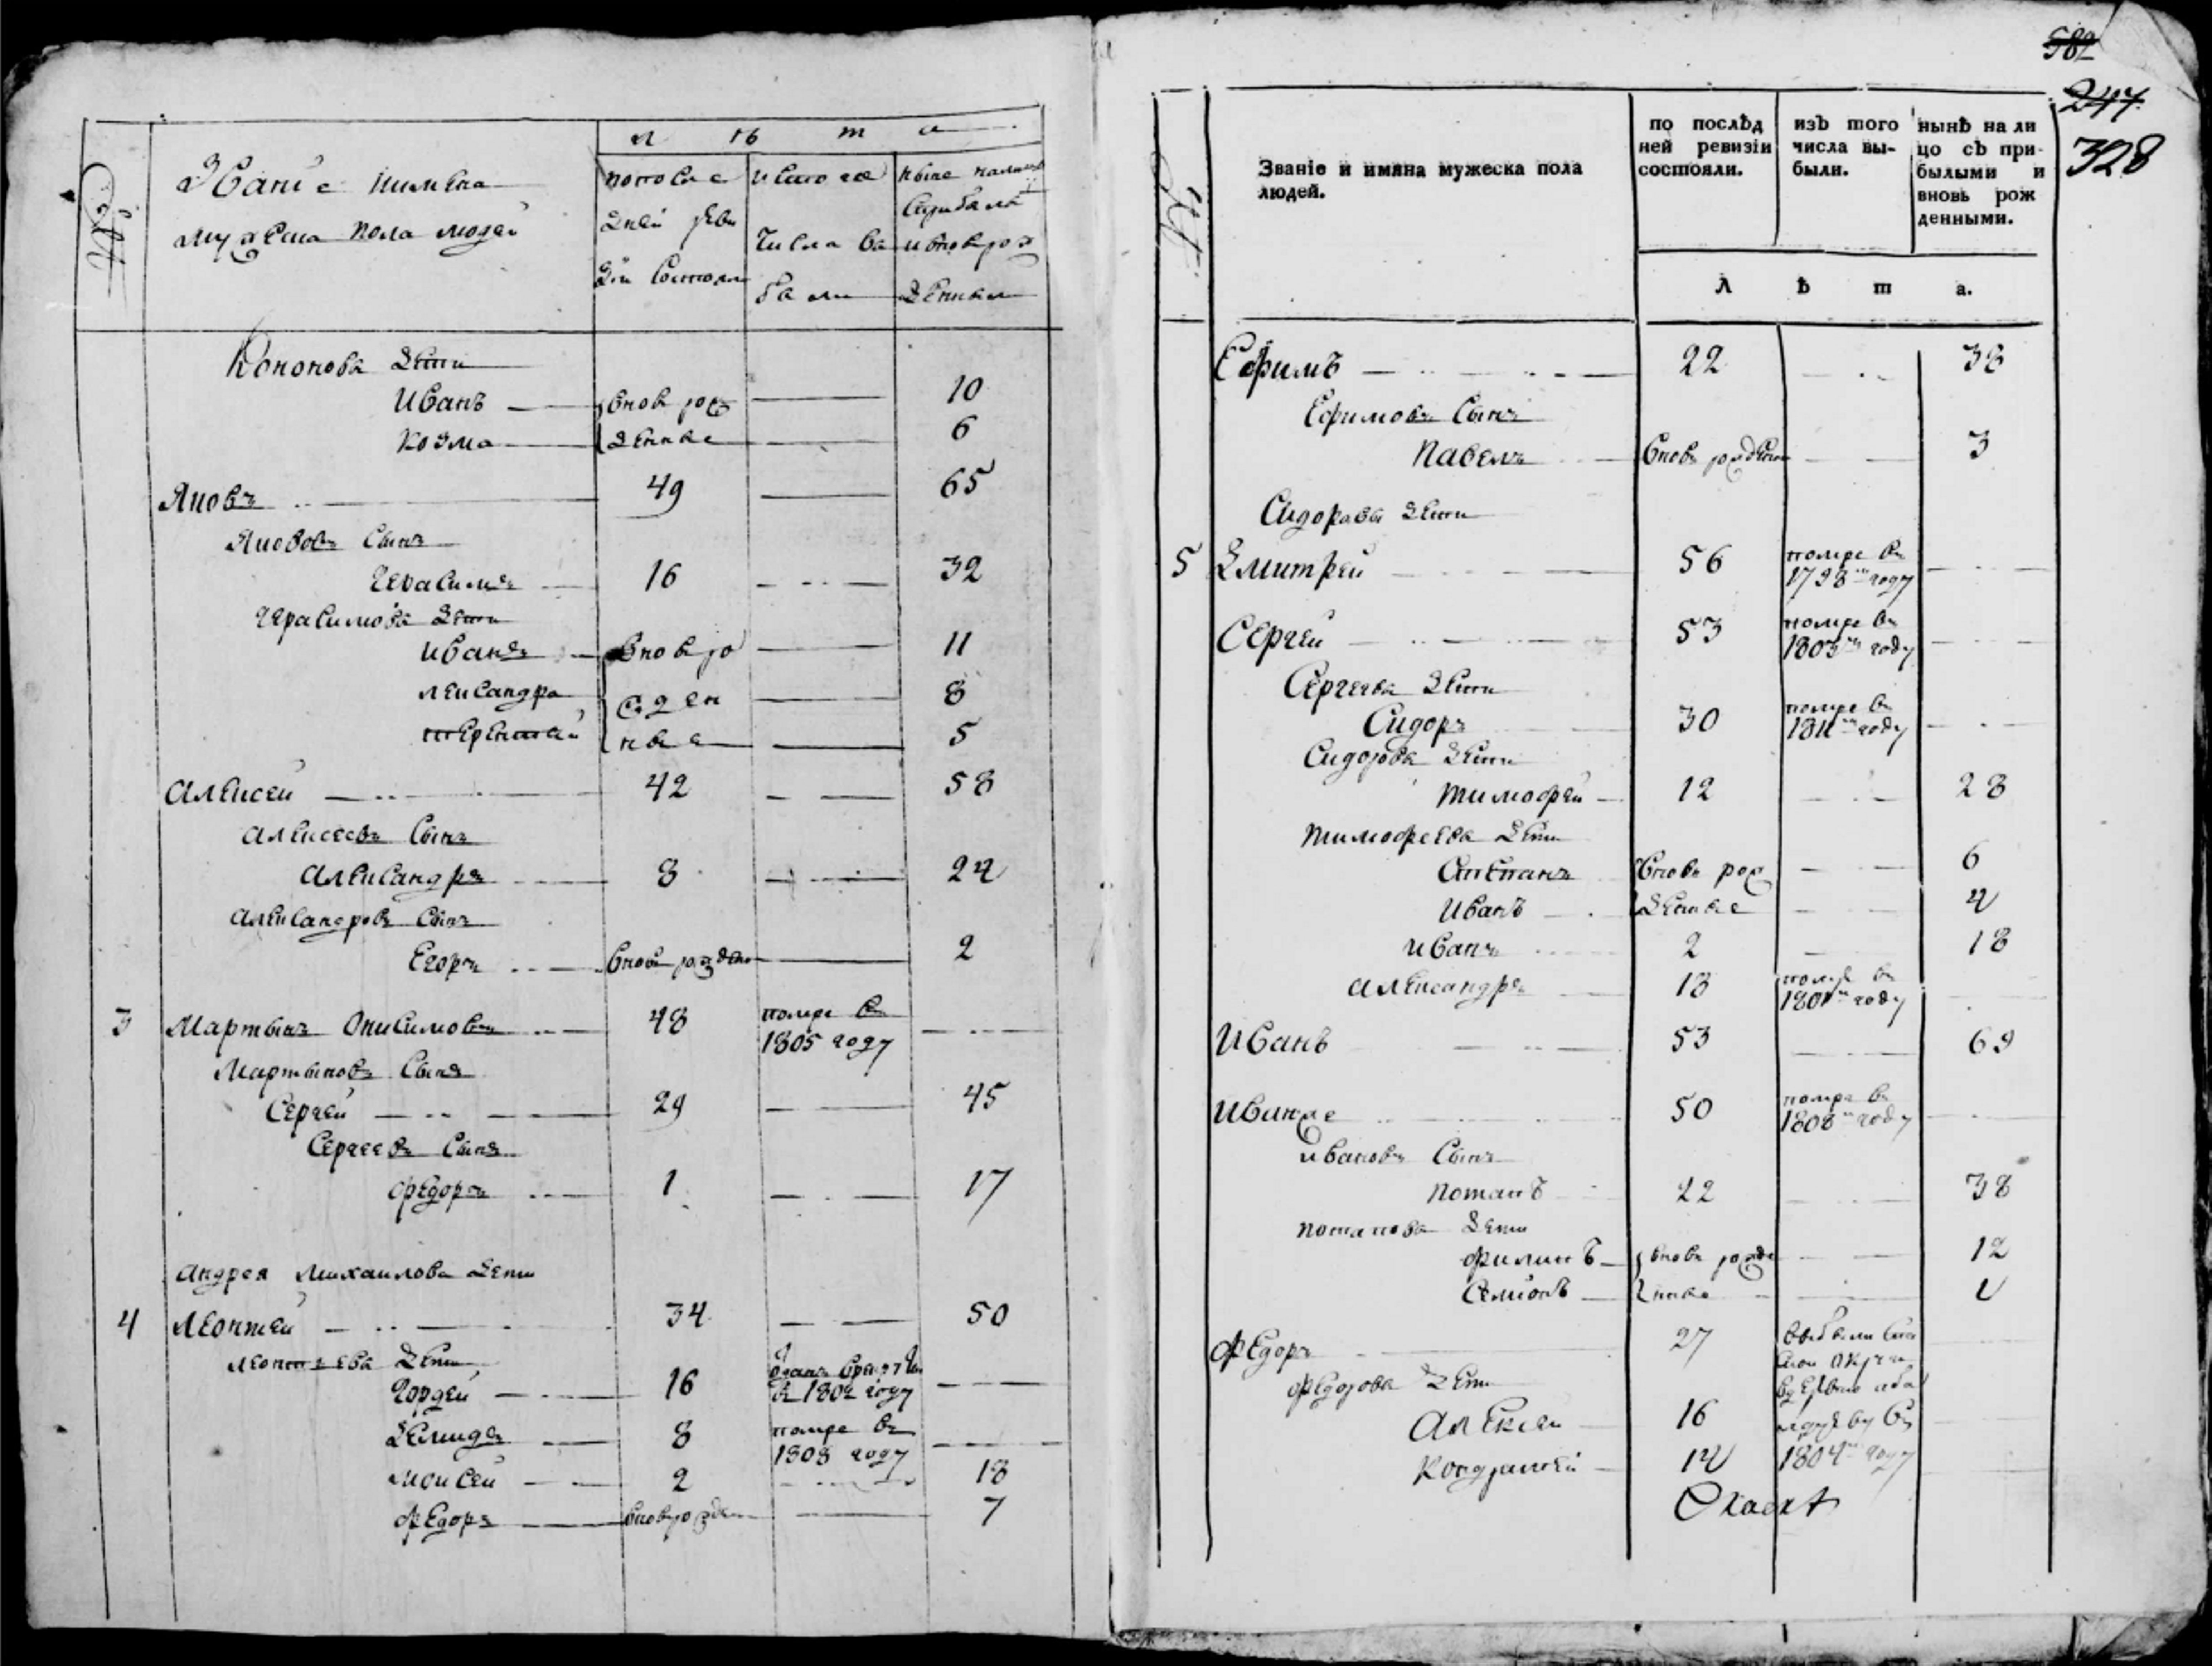 №
Званіе иимена
мужеска пола людей
л ѣ т а
попосле
дней реви
зіи состояли
истого
числа вы
были
ныне налицо
сприбылы
ивновь рож
денными
Кононова дети
Иванъ вновь рож 10
Козма денные 6
Яковъ 49 65
Яковов сынъ
Герасимъ 16 32
Герасимова дети
Иванъ вновь ро 11
Лександра жден 8
Терентей ные 5
Алексей 42 58
Алексеевъ сынъ
Александръ 8 24
Александровъ сынъ
Егоръ вновь рожден 2
3 Мартынъ Онисимовъ 48 помре в 1805 году
Мартыновъ сынъ
Сергей 29 45
Сергеевъ сынъ
Федоръ 1 17
Андрея Михаилова дети
4 Леонтей 34 50
Леонтьева дети
Гордей 16 отданъ врекруты в 1802 году
Демидъ 8 помре въ 1808 году
Моисей 2 18
Федоръ вновь рожден 7
582
247
328
№
Званіе и имяна мужеска пола
людей.
по послѣд
ней ревизіи
состояли.
изъ того
числа вы-
были.
нынѣ на ли
цо съ при-
былыми и
вновь рож
денными.
Л ѣ т а.
Ефимъ 22 38
Ефимовъ сынъ
Павелъ вновь рожден 3
Сидоравы дети
5 Дмитрей 56 помре въ 1798м году
Сергей 53 помре въ 1803м году
Сергеева дети
Сидоръ 30 помре въ 1811м году
Сидорова дети
Тимофей 12 28
Тимофеева дети
Степанъ вновь рож 6
Иванъ денные 4
Иванъ 2 18
Александръ 18 помре въ 1801м году
Иванъ 53 69
Иванже 50 помре въ 1808м году
Ивановъ сынъ
Потапъ 22 38
Потапова дети
Филипъ вновь рожде 12
Семіонъ нные
Федоръ 27 выбыли
Федорова дети
Алексеи 16
Кондратей 14 1804м году